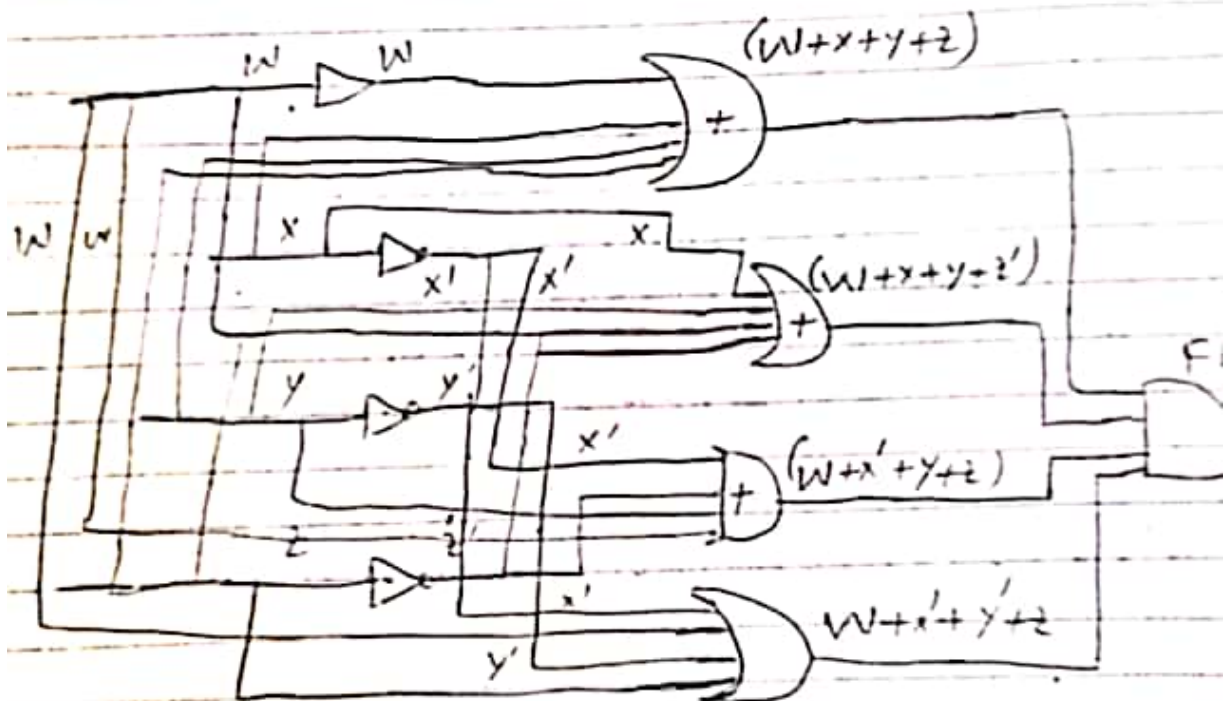 W W (W+x+y+z)
+
W W x x
x' x' (W+x+y+z')
+
y y' F
x' (W+x'+y+z)
+
z z'
x' W+x'+y'+z
y'